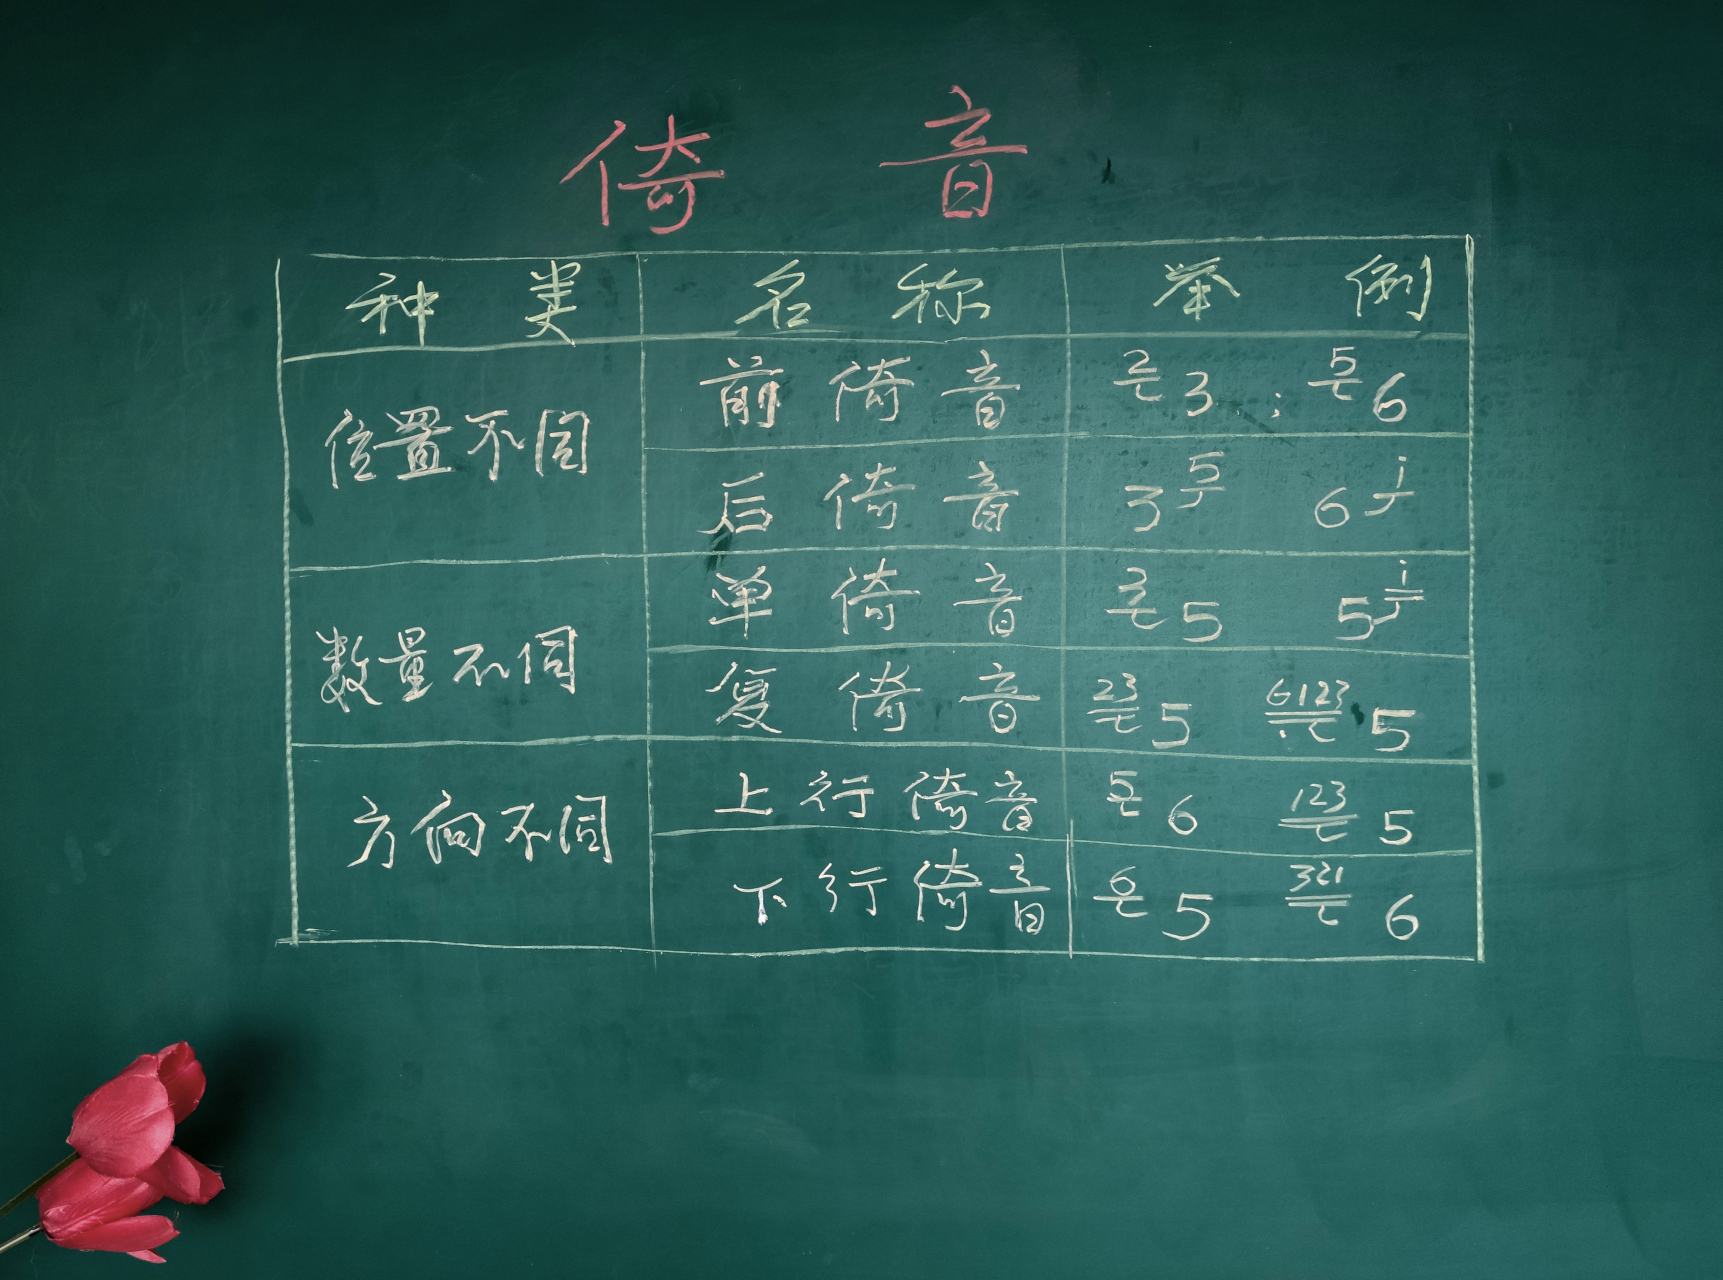 倚 音
种 类 名 称 举 例
位置不同
前 倚 音 2 3 ; 5 6
后 倚 音 3 5 6 i
数量不同
单 倚 音 5 5 i
复 倚 音 23 5 6123 5
方向不同
上 行 倚 音 5 6 123 5
下 行 倚 音 6 5 321 6